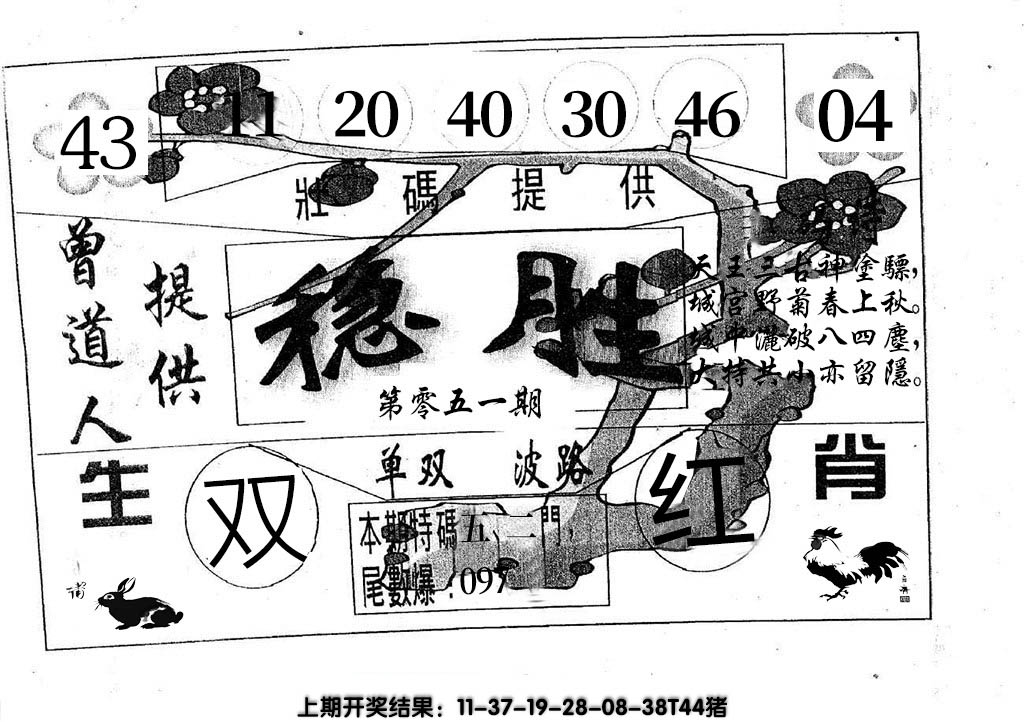 43 11 20 40 30 46 04
壯碼提供
曾道人
提供
稳胜
第零五一期
特
天王三古神塗驃，
城宫野菊春上秋。
城中灑破八四塵，
大特共小亦留隱。
单双 波路
生肖
双
红
本期特碼五、二門，
尾數爆：097
上期开奖结果：11-37-19-28-08-38T44猪